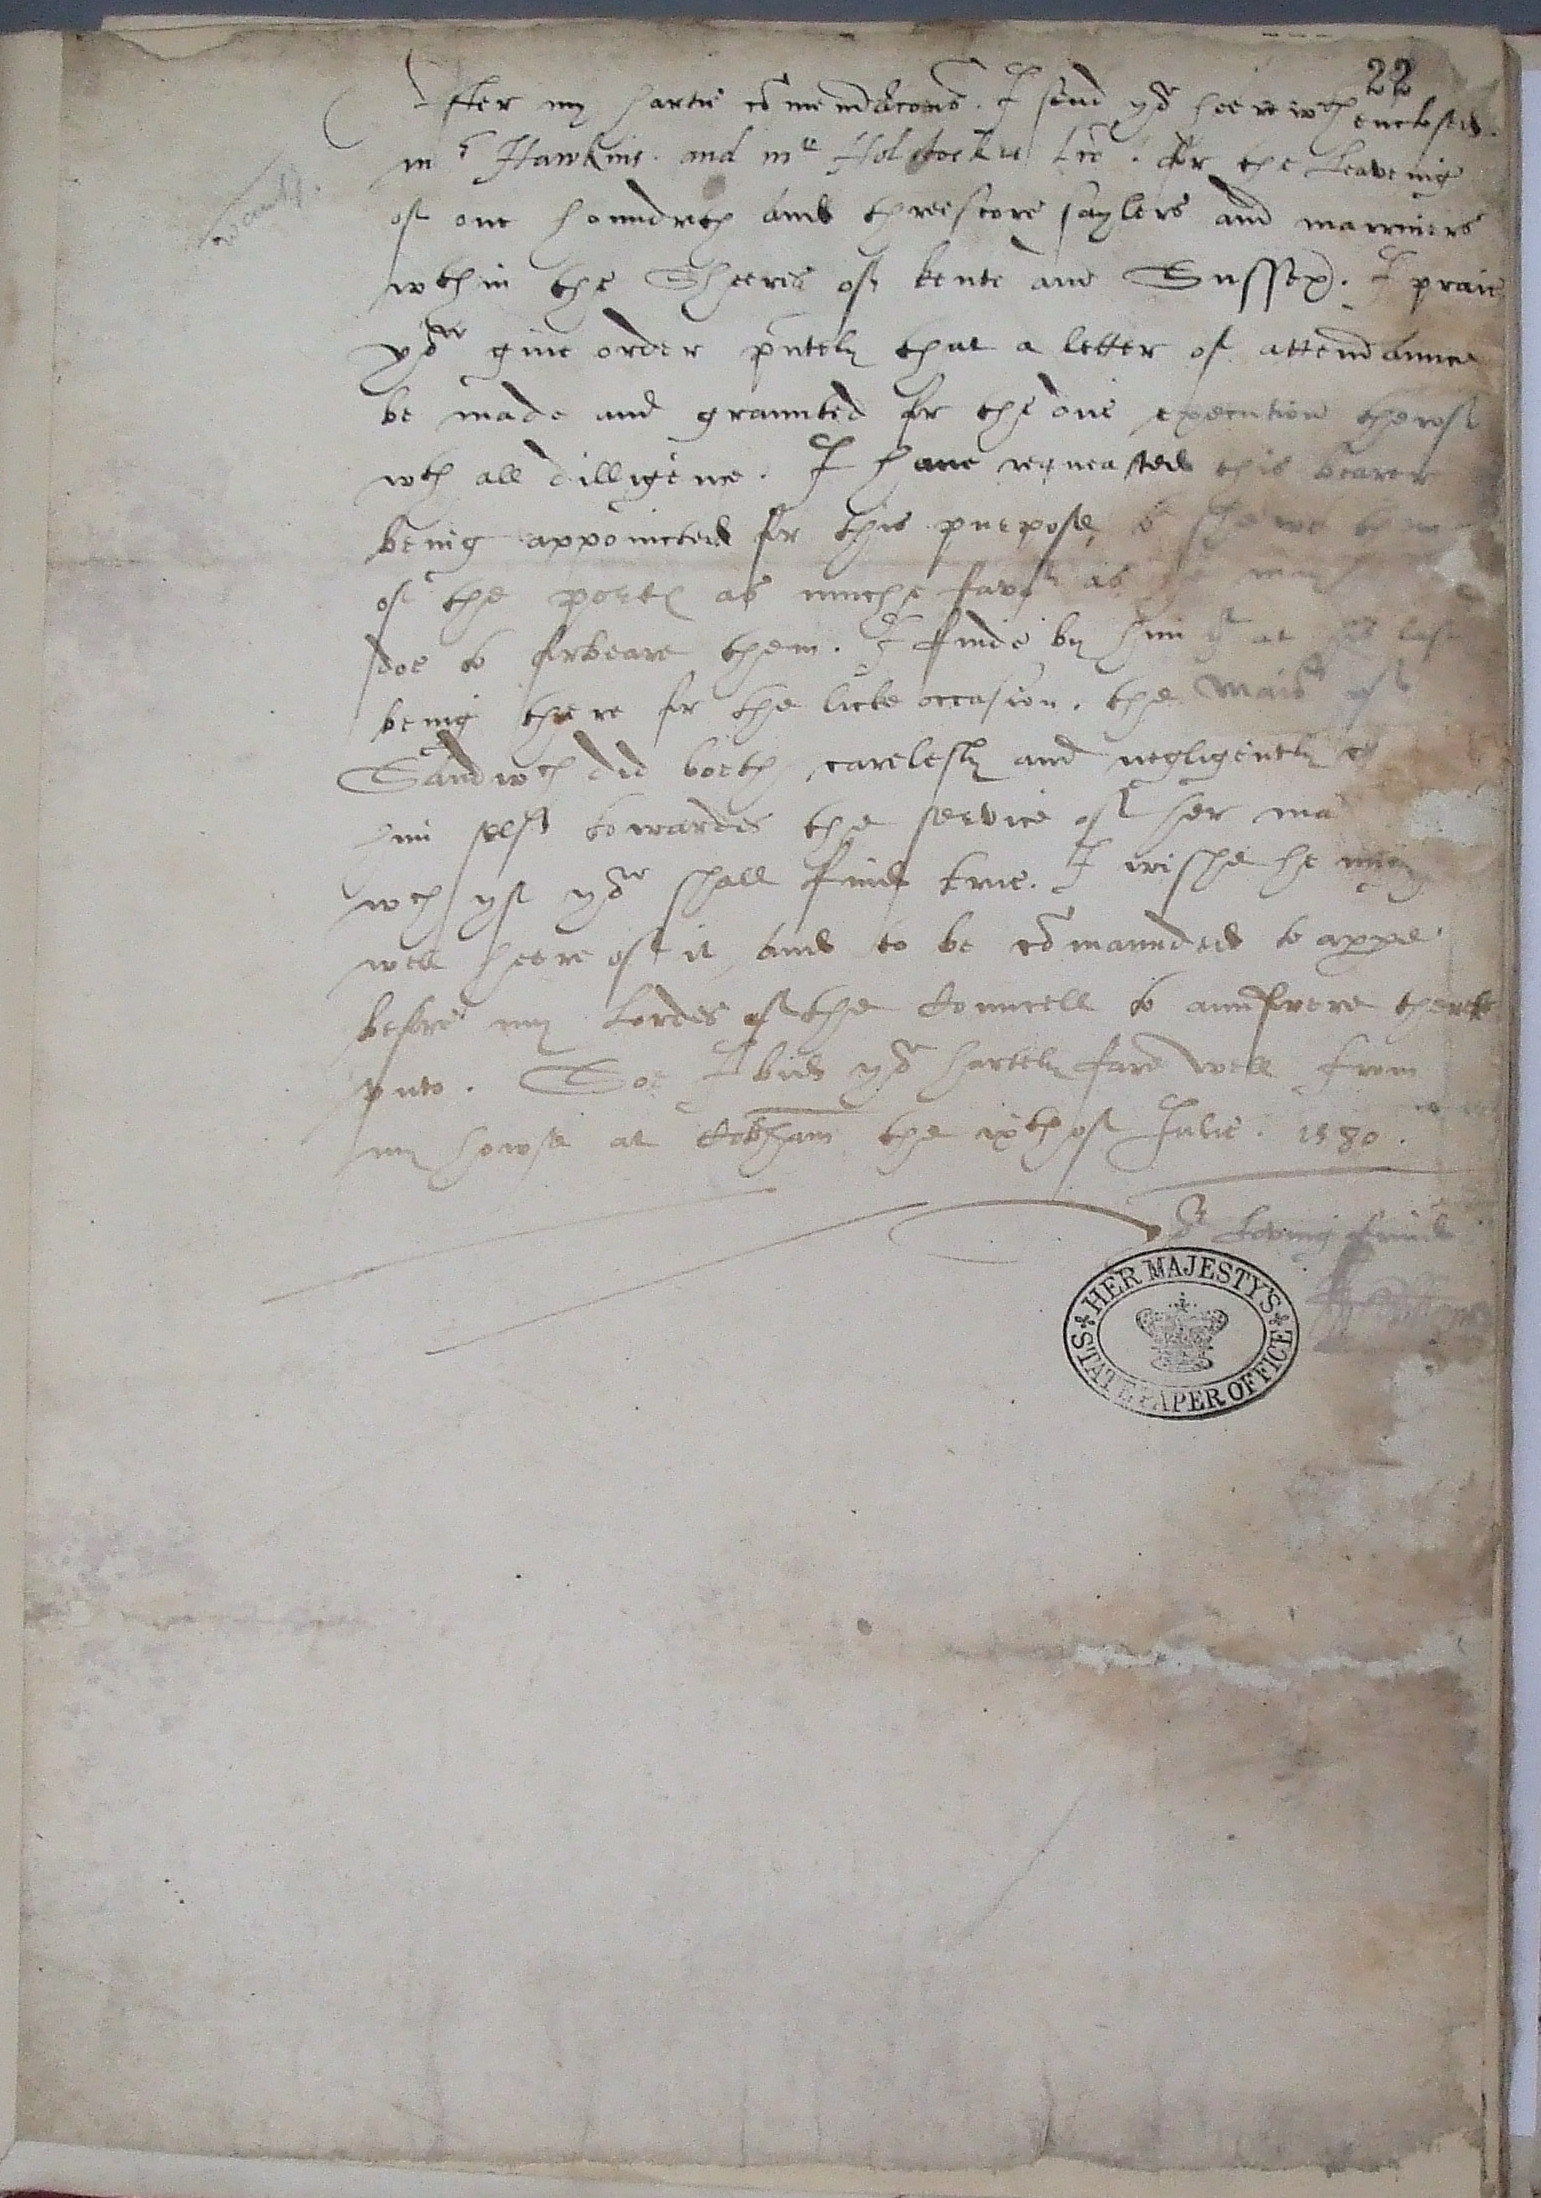 22
After my hartie comendacons. I send yor heerewth enclosed
mr Hawkins and mr Holstockes lre. for the leaveinge
of one houndreth and threescore saylers and marriners
wthin the Sheeres of Kente and Sussex. I praie
yow give order pntely that a letter of attendaunce
be made and graunted for the due execution therof
wth all dilligence. I have requested this bearer
being appointed for this purpose, to shewe them
of the portes as muche favor as he may
doe to forbeare them. I finde by him yt at his last
being there for the licke occasion, the Maior of
Sandwch did boeth carelesly and negligently
him self towardes the service of her ma
wch yf yow shall finde true. I wishe he may
well heere of it and to be comaunded to appe
before my Lordes of the Councell to aunswere there
unto. Soe I bid yor hartely fare well from
my howse at Cobham the ixth of Julie. 1580.
yor Loving frind
HER MAJESTY'S
STATE PAPER OFFICE